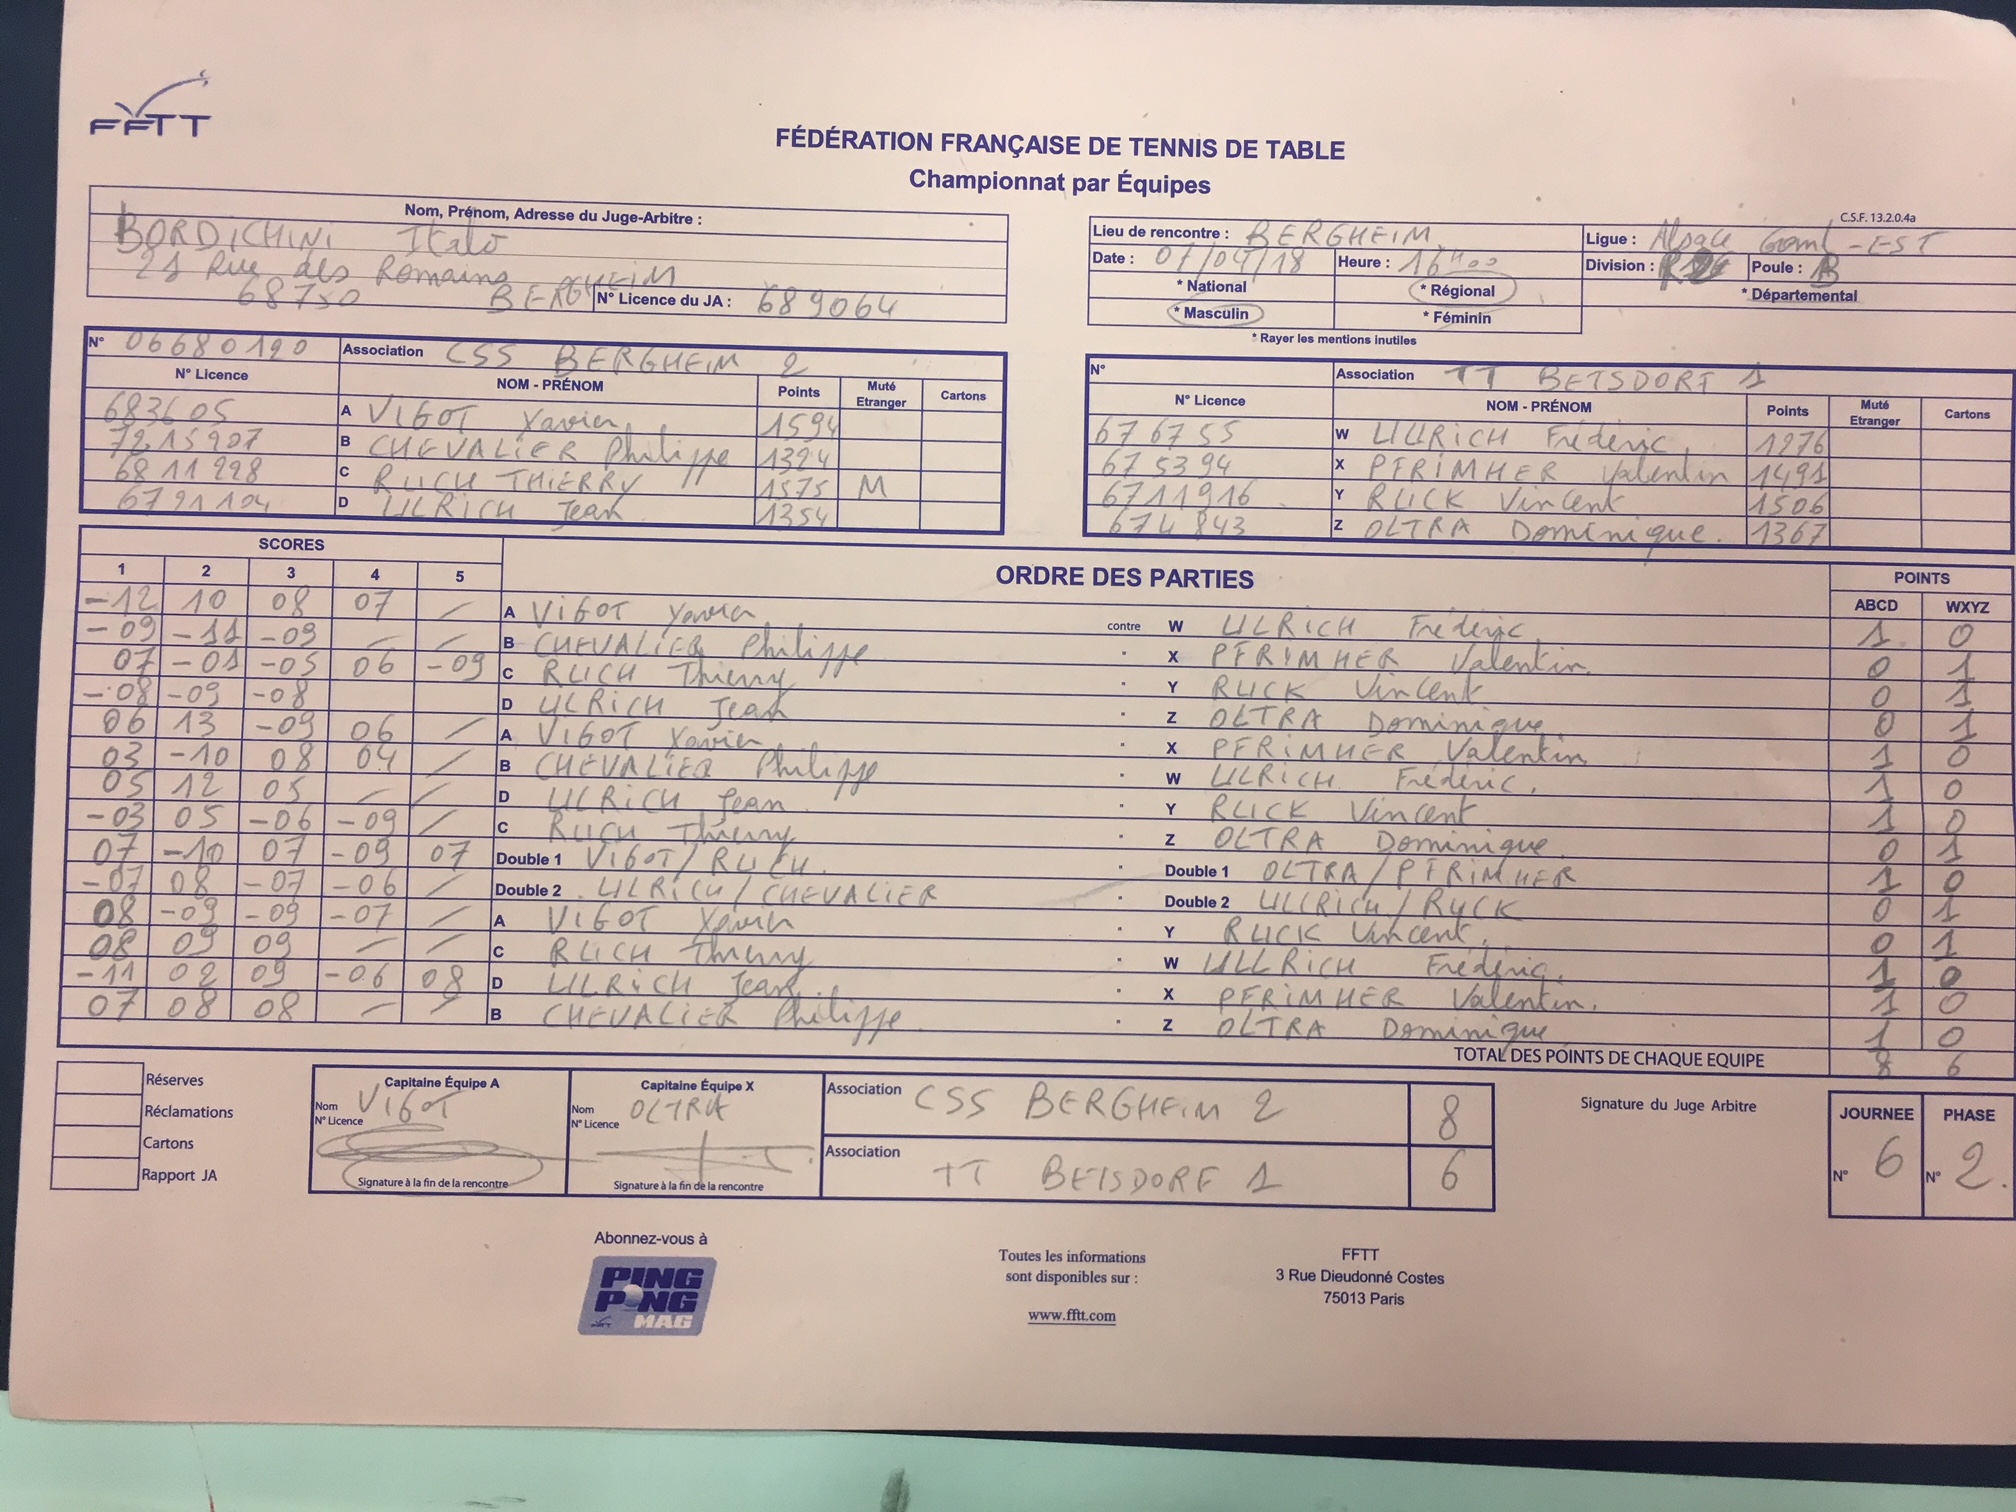 FFTT
FÉDÉRATION FRANÇAISE DE TENNIS DE TABLE
Championnat par Équipes
C.S.F. 13.2.0.4a
Nom, Prénom, Adresse du Juge-Arbitre :
BORDICHINI Italo
21 Rue des Romains
68750 BERGHEIM
N° Licence du JA : 689064
Lieu de rencontre : BERGHEIM Ligue : Alsace Grand-EST
Date : 07/04/18 Heure : 16H00 Division : Poule : B
* National * Régional * Départemental
* Masculin * Féminin
* Rayer les mentions inutiles
N° 06680120 Association CSS BERGHEIM 2
N° Licence NOM - PRÉNOM Points Muté Etranger Cartons
683605 A VIGOT Xavier 1594
7215907 B CHEVALIER Philippe 1324
6811228 C RUCH THIERRY 1575 M
6791104 D ULRICH Jean 1354
N° Association TT BETSDORF 1
N° Licence NOM - PRÉNOM Points Muté Etranger Cartons
676755 W ULLRICH Fréderic 1276
675394 X PFRIMMER Valentin 1491
6711916 Y RUCK Vincent 1506
674843 Z OLTRA Dominique. 1367
SCORES ORDRE DES PARTIES POINTS
1 2 3 4 5 ABCD WXYZ
-12 10 08 07 / A VIGOT Xavier contre W ULRICH Fréderic 1 0
-09 -11 -09 / / B CHEVALIER Philippe " X PFRIMMER Valentin. 0 1
07 -01 -05 06 -09 C RUCH Thierry " Y RUCK Vincent 0 1
-08 -09 -08 D ULRICH Jean " Z OLTRA Dominique 0 1
06 13 -09 06 / A VIGOT Xavier " X PFRIMMER Valentin 1 0
03 -10 08 04 / B CHEVALIER Philippe " W ULRICH Fréderic. 1 0
05 12 05 / / D ULRICH Jean " Y RUCK Vincent 1 0
-03 05 -06 -09 / C RUCH Thierry " Z OLTRA Dominique. 0 1
07 -10 07 -09 07 Double 1 VIGOT/RUCH " Double 1 OLTRA/PFRIMMER 1 0
-07 08 -07 -06 / Double 2 ULRICH/CHEVALIER " Double 2 ULLRICH/RUCK 0 1
08 -09 -09 -07 / A VIGOT Xavier " Y RUCK Vincent. 0 1
08 09 09 / / C RUCH Thierry " W ULLRICH Fréderic. 1 0
-11 02 09 -06 08 D ULRICH Jean. " X PFRIMMER Valentin. 1 0
07 08 08 / / B CHEVALIER Philippe. " Z OLTRA Dominique 1 0
TOTAL DES POINTS DE CHAQUE EQUIPE 8 6
Réserves
Réclamations
Cartons
Rapport JA
Capitaine Équipe A
Nom VIGOT
N° Licence
Signature à la fin de la rencontre
Capitaine Équipe X
Nom OLTRA
N° Licence
Signature à la fin de la rencontre
Association CSS BERGHEIM 2 8
Association TT BETSDORF 1 6
Signature du Juge Arbitre
JOURNEE PHASE
N° 6 N° 2.
Abonnez-vous à
PING
PONG
MAG
Toutes les informations
sont disponibles sur :
www.fftt.com
FFTT
3 Rue Dieudonné Costes
75013 Paris